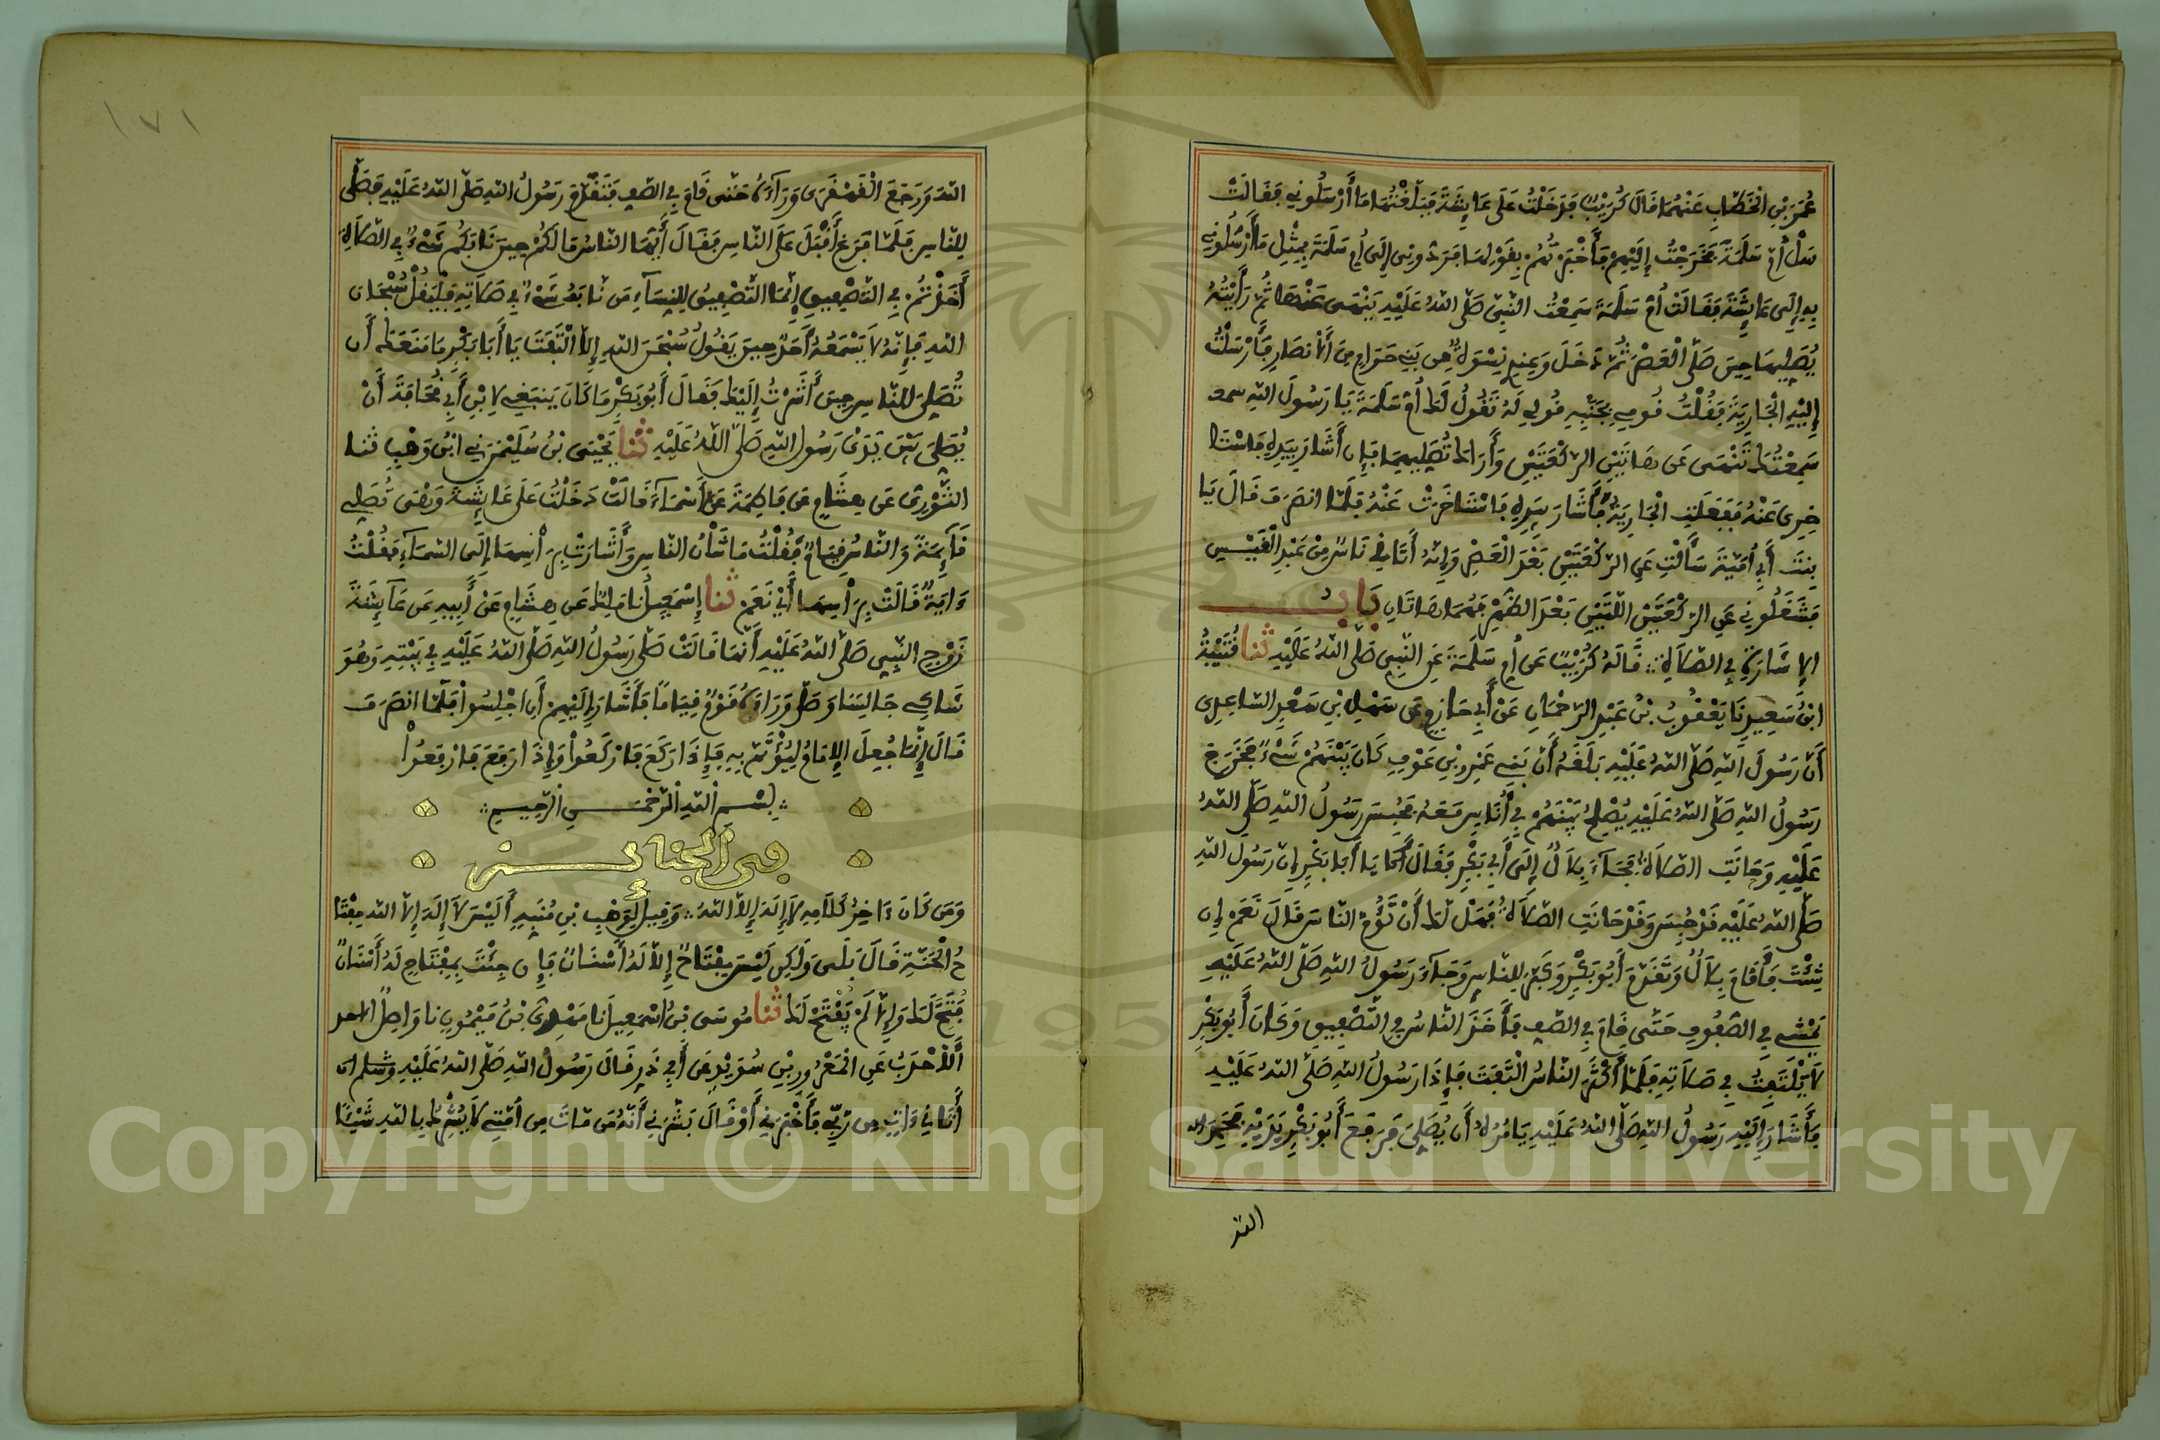 عُمَرَ بْنِ الْخَطَّابِ عَنْهُمَا قَالَ كُرَيْبٌ فَدَخَلْتُ عَلَى عَائِشَةَ فَبَلَّغْتُهَا مَا أَرْسَلُونِي فَقَالَتْ
سَلْ أُمَّ سَلَمَةَ فَخَرَجْتُ إِلَيْهِمْ فَأَخْبَرْتُهُمْ بِقَوْلِهَا فَرَدُّونِي إِلَى أُمِّ سَلَمَةَ بِمِثْلِ مَا أَرْسَلُونِي
بِهِ إِلَى عَائِشَةَ فَقَالَتْ أُمُّ سَلَمَةَ سَمِعْتُ النَّبِيَّ صَلَّى اللهُ عَلَيْهِ يَنْهَى عَنْهَا ثُمَّ رَأَيْتُهُ
يُصَلِّيهِمَا حِينَ صَلَّى الْعَصْرَ ثُمَّ دَخَلَ وَعِندِي نِسْوَةٌ مِن بَنِي حَرَامٍ مِنَ الْأَنصَارِ فَأَرْسَلْتُ
إِلَيْهِ الْجَارِيَةَ فَقُلْتُ قُومِي بِجَنْبِهِ قُولِي لَهُ تَقُولُ لَكَ أُمُّ سَلَمَةَ يَا رَسُولَ اللهِ
سَمِعْتُكَ تَنْهَى عَن هَاتَيْنِ الرَّكْعَتَيْنِ وَأَرَاكَ تُصَلِّيهِمَا فَإِن أَشَارَ بِيَدِهِ فَاسْتَا
خِرِي عَنْهُ فَفَعَلَتِ الْجَارِيَةُ فَأَشَارَ بِيَدِهِ فَاسْتَاخَرَتْ عَنْهُ فَلَمَّا انصَرَفَ قَالَ يَا
بِنتَ أَبِي أُمَيَّةَ سَأَلْتِ عَنِ الرَّكْعَتَيْنِ بَعْدَ الْعَصْرِ وَإِنَّهُ أَتَانِي نَاسٌ مِنْ عَبْدِ الْقَيْسِ
فَشَغَلُونِي عَنِ الرَّكْعَتَيْنِ اللَّتَيْنِ بَعْدَ الظُّهْرِ فَهُمَا هَاتَانِ بَابُ
الْإِشَارَةِ فِي الصَّلَاةِ قَالَهُ كُرَيْبٌ عَن أُمِّ سَلَمَةَ عَنِ النَّبِيِّ صَلَّى اللهُ عَلَيْهِ ثنا قُتَيْبَةُ
ابْنُ سَعِيدٍ نَا يَعْقُوبُ بْنُ عَبْدِ الرَّحْمَانِ عَنْ أَبِي حَازِمٍ عَن سَهْلِ بْنِ سَعْدٍ السَّاعِدِي
أَنَّ رَسُولَ اللهِ صَلَّى اللهُ عَلَيْهِ بَلَغَهُ أَنَّ بَنِي عَمْرِو بْنِ عَوْفٍ كَانَ بَيْنَهُمْ شَيْءٌ فَخَرَجَ
رَسُولُ اللهِ صَلَّى اللهُ عَلَيْهِ يُصْلِحُ بَيْنَهُمْ فِي أُنَاسٍ مَعَهُ فَحُبِسَ رَسُولُ اللهِ صَلَّى اللهُ
عَلَيْهِ وَحَانَتِ الصَّلَاةُ فَجَاءَ بِلَالٌ إِلَى أَبِي بَكْرٍ فَقَالَ يَا أَبَا بَكْرٍ إِنَّ رَسُولَ اللهِ
صَلَّى اللهُ عَلَيْهِ قَدْ حُبِسَ وَقَدْ حَانَتِ الصَّلَاةُ فَهَلْ لَكَ أَنْ تَؤُمَّ النَّاسَ قَالَ نَعَمْ إِن
شِئْتَ فَأَقَامَ بِلَالٌ وَتَقَدَّمَ أَبُو بَكْرٍ وَكَبَّرَ لِلنَّاسِ وَجَاءَ رَسُولُ اللهِ صَلَّى اللهُ عَلَيْهِ
يَمْشِي فِي الصُّفُوفِ حَتَّى قَامَ فِي الصَّفِّ فَأَخَذَ النَّاسُ فِي التَّصْفِيقِ وَكَانَ أَبُو بَكْرٍ
لَا يَلْتَفِتُ فِي صَلَاتِهِ فَلَمَّا أَكْثَرَ النَّاسُ الْتَفَتَ فَإِذَا رَسُولُ اللهِ صَلَّى اللهُ عَلَيْهِ
فَأَشَارَ إِلَيْهِ رَسُولُ اللهِ صَلَّى اللهُ عَلَيْهِ يَامُرُهُ أَن يُصَلِّيَ فَرَفَعَ أَبُو بَكْرٍ يَدَيْهِ فَحَمِدَ الله
اللهَ
١٧١
اللهَ وَرَجَعَ الْقَهْقَرَى وَرَاءَهُ حَتَّى قَامَ فِي الصَّفِّ فَتَقَدَّمَ رَسُولُ اللهِ صَلَّى اللهُ عَلَيْهِ فَصَلَّى
لِلنَّاسِ فَلَمَّا فَرَغَ أَقْبَلَ عَلَى النَّاسِ فَقَالَ أَيُّهَا النَّاسُ مَا لَكُمْ حِينَ نَابَكُمْ شَيْءٌ فِي الصَّلَاةِ
أَخَذْتُمْ فِي التَّصْفِيقِ إِنَّمَا التَّصْفِيقُ لِلنِّسَاءِ مَن نَابَهُ شَيْءٌ فِي صَلَاتِهِ فَلْيَقُلْ سُبْحَانَ
اللهِ فَإِنَّهُ لَا يَسْمَعُهُ أَحَدٌ حِينَ يَقُولُ سُبْحَنَ اللهِ إِلَّا الْتَفَتَ يَا أَبَا بَكْرٍ مَا مَنَعَكَ أَن
تُصَلِّيَ لِلنَّاسِ حِينَ أَشَرْتُ إِلَيْكَ فَقَالَ أَبُو بَكْرٍ مَا كَانَ يَنبَغِي لِابْنِ أَبِي قُحَافَةَ أَنْ
يُصَلِّيَ بَيْنَ يَدَيْ رَسُولِ اللهِ صَلَّى اللهُ عَلَيْهِ ثنا يَحْيَى بْنُ سُلَيْمَنَ نِي ابْنُ وَهْبٍ ثنا
الثَّوْرِيُّ عَن هِشَامٍ عَن فَاطِمَةَ عَنْ أَسْمَاءَ قَالَتْ دَخَلْتُ عَلَى عَائِشَةَ وَهْيَ تُصَلِّي
قَائِمَةً وَالنَّاسُ قِيَامٌ فَقُلْتُ مَا شَأْنُ النَّاسِ وَأَشَارَتْ بِرَأْسِهَا إِلَى السَّمَاءِ فَقُلْتُ
ءَايَةٌ قَالَتْ بِرَأْسِهَا أَيْ نَعَمْ ثنا إِسْمَعِيلُ نا مَالِكٌ عَن هِشَامٍ عَنْ أَبِيهِ عَن عَائِشَةَ
زَوْجِ النَّبِيِّ صَلَّى اللهُ عَلَيْهِ أَنَّهَا قَالَتْ صَلَّى رَسُولُ اللهِ صَلَّى اللهُ عَلَيْهِ فِي بَيْتِهِ وَهُوَ
شَاكٍ جَالِسًا وَصَلَّى وَرَاءَهُ قَوْمٌ قِيَامًا فَأَشَارَ إِلَيْهِمْ أَنِ اجْلِسُوا فَلَمَّا انصَرَفَ
قَالَ إِنَّمَا جُعِلَ الْإِمَامُ لِيُؤْتَمَّ بِهِ فَإِذَا رَكَعَ فَارْكَعُوا وَإِذَا رَفَعَ فَارْفَعُوا
بِسْمِ اللهِ الرَّحْمَنِ الرَّحِيمِ
فِي الْجَنَائِزِ
وَمَن كَانَ ءَاخِرُ كَلَامِهِ لَا إِلَهَ إِلَّا اللهُ وَقِيلَ لِوَهْبِ بْنِ مُنَبِّهٍ أَلَيْسَ لَا إِلَهَ إِلَّا اللهُ مِفْتَا
حُ الْجَنَّةِ قَالَ بَلَى وَلَكِن لَيْسَ مِفْتَاحٌ إِلَّا لَهُ أَسْنَانٌ فَإِن جِئْتَ بِمِفْتَاحٍ لَهُ أَسْنَانٌ
فُتِحَ لَكَ وَإِلَّا لَمْ يُفْتَحْ لَكَ ثنا مُوسَى بْنُ إِسْمَعِيلَ نَا مَهْدِيُّ بْنُ مَيْمُونٍ نا وَاصِلٌ
الْأَحْدَبُ عَنِ الْمَعْرُورِ بْنِ سُوَيْدٍ عَن أَبِي ذَرٍّ قَالَ رَسُولُ اللهِ صَلَّى اللهُ عَلَيْهِ وسلم
أَتَانِي ءَاتٍ مِن رَبِّي فَأَخْبَرَنِي أَوْ قَالَ بَشَّرَنِي أَنَّهُ مَن مَاتَ مِن أُمَّتِي لَا يُشْرِكُ بِاللهِ شَيْئًا
Copyright © King Saud University